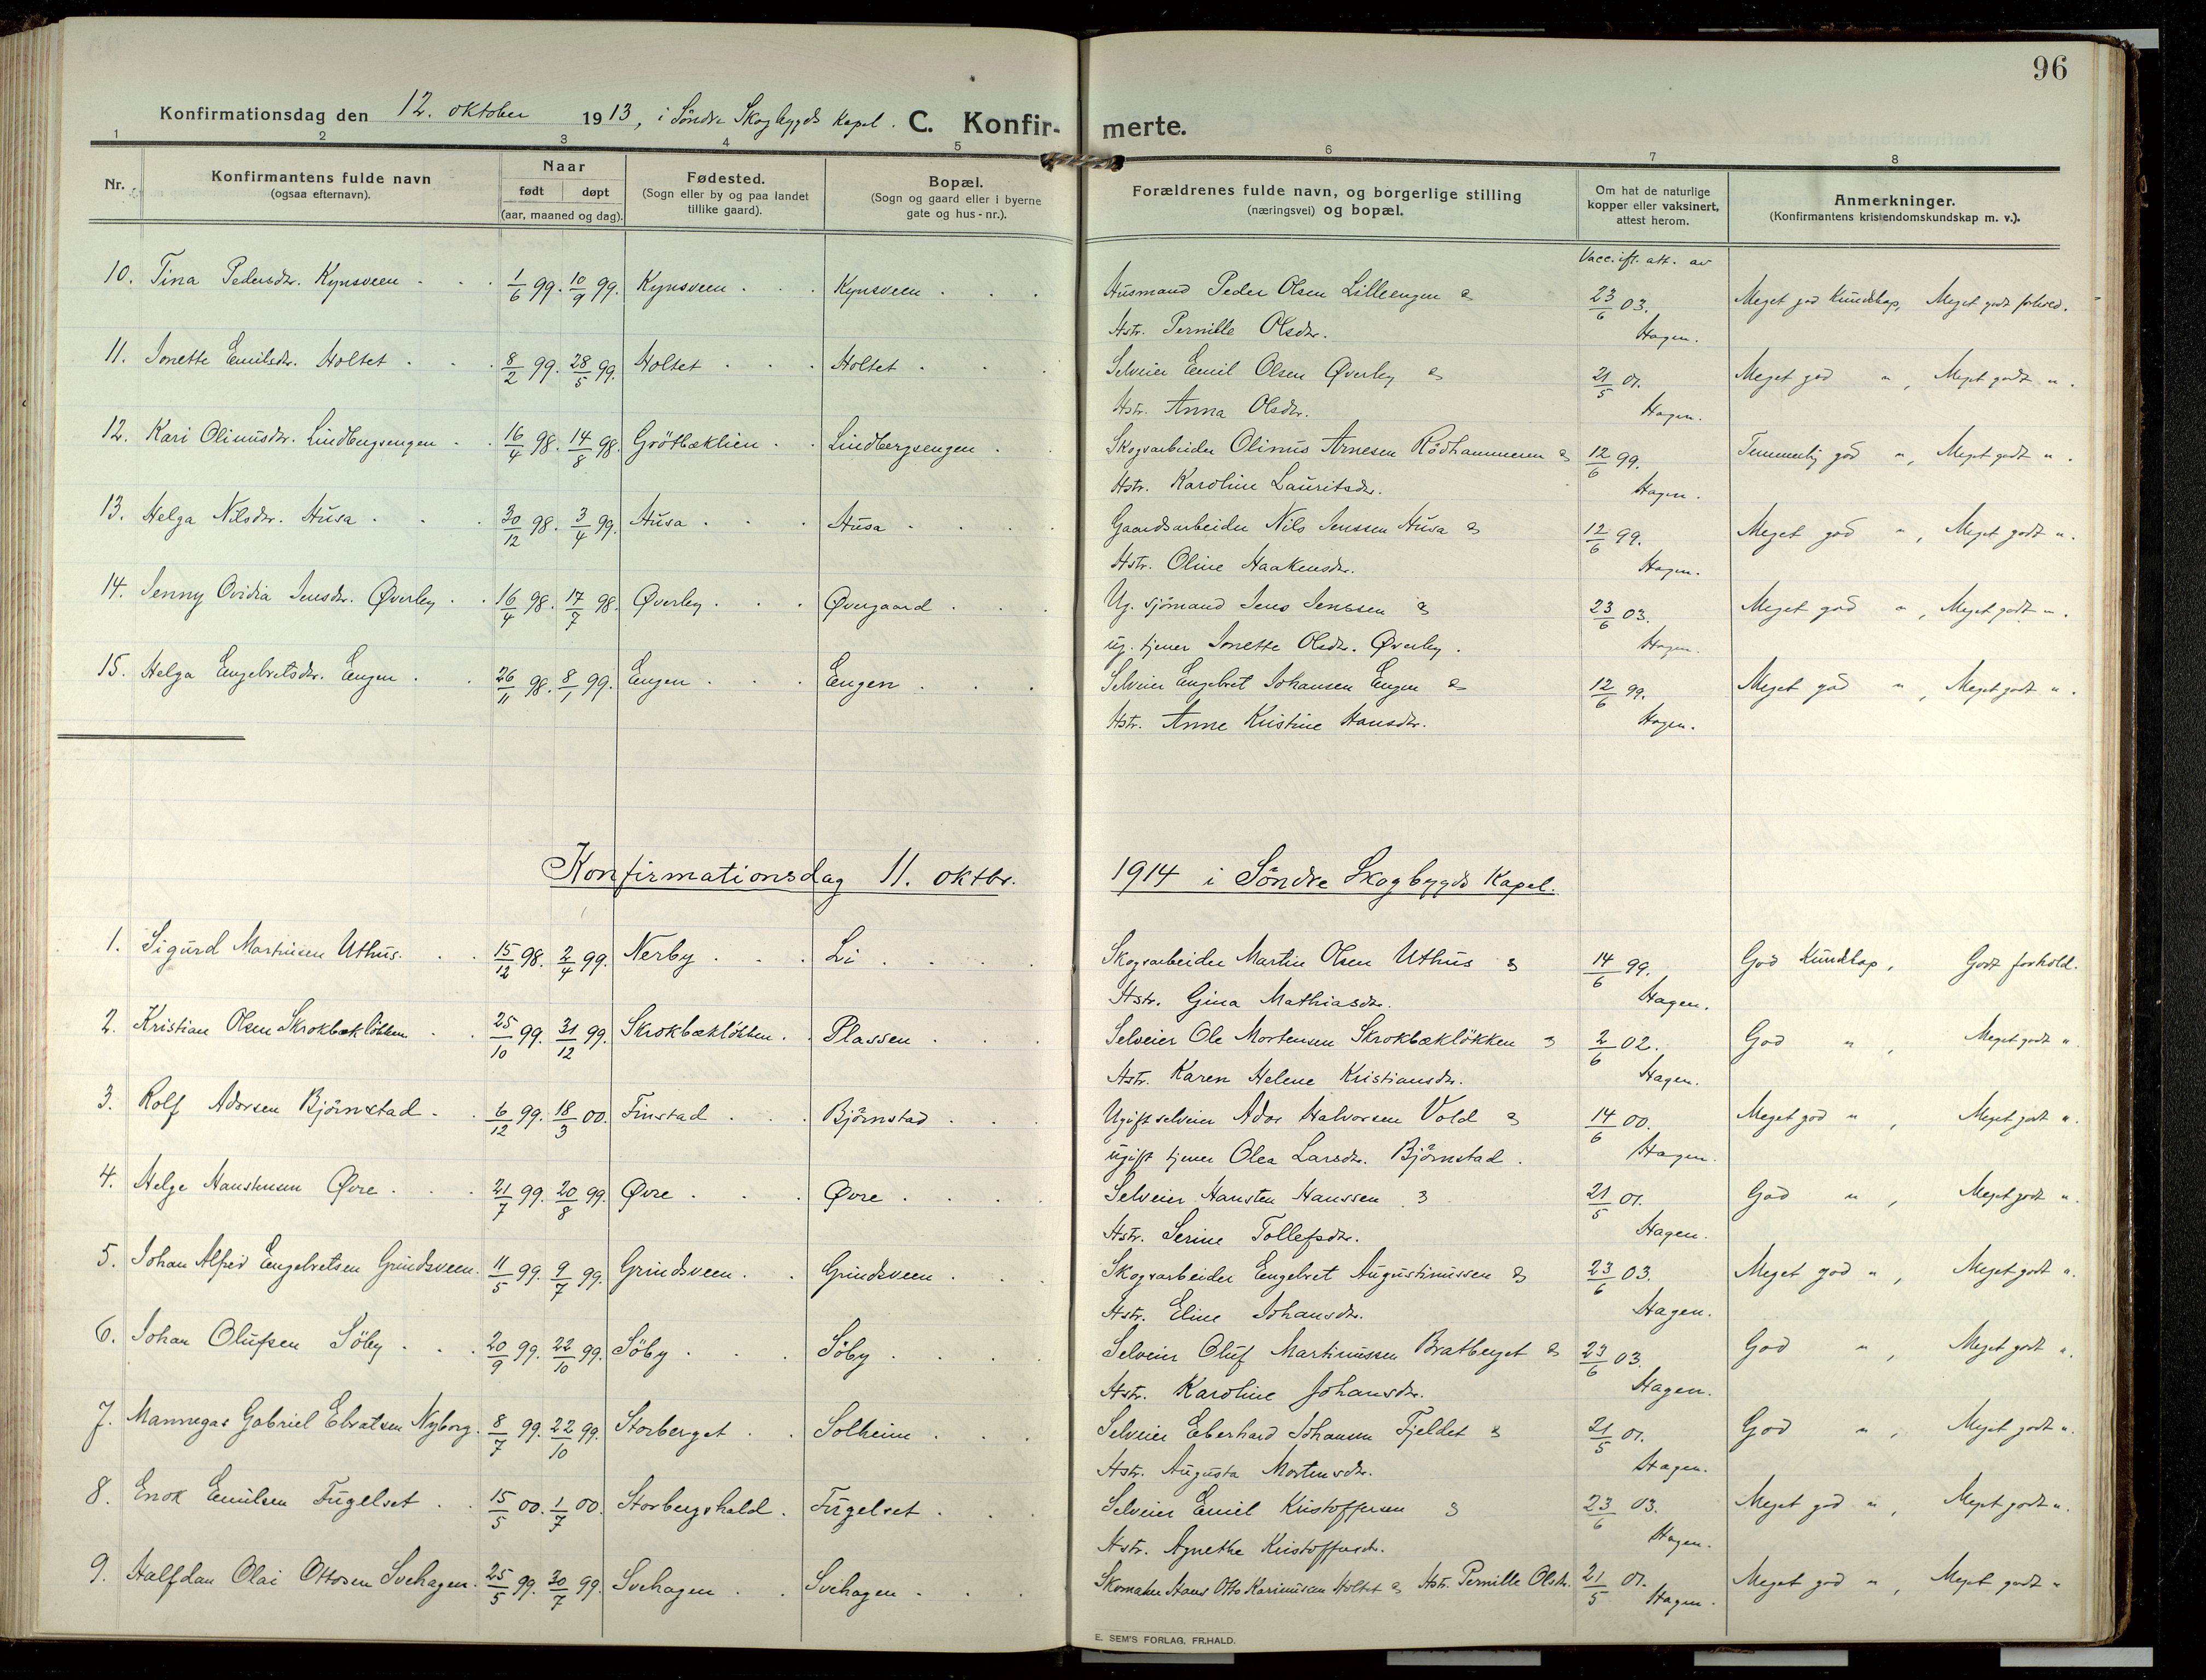 96
Konfirmationsdag den 12. oktober 1913, i Söndre Skogbygds Kapel. C. Konfirmerte.
1 2 3 4 5 6 7 8
Nr. Konfirmantens fulde navn (ogsaa efternavn). Naar født døpt (aar, maaned og dag). Fødested. (Sogn eller by og paa landet tillike gaard). Bopæl. (Sogn og gaard eller i byerne gate og hus-nr.). Forældrenes fulde navn, og borgerlige stilling (næringsvei) og bopæl. Om hat de naturlige kopper eller vaksinert, attest herom. Anmerkninger. (Konfirmantens kristendomskundskap m. v.).
Vacc. ifl. att. av
10. Tina Pedersdr. Kynsveen 1/6 99. 10/9 99. Kynsveen Kynsveen Husmand Peder Olsen Lilleengen & 23/6 03. Meget god Kundskap, Meget godt forhold.
Hstr. Pernille Olsdr. Hagen.
11. Jonette Emilsdr. Holtet 8/2 99. 28/5 99. Holtet Holtet Selveier Emil Olsen Øverby & 21/5 01. Meget god " , Meget godt " .
Hstr. Anna Olsdr. Hagen.
12. Kari Olinusdr. Lindbergsengen 16/4 98. 14/8 98. Grötbæklien Lindbergsengen Skogsarbeider Olinus Arnesen Rödhammeren & 12/6 99. Temmelig god " , Meget godt " .
Hstr. Karoline Lauritsdr. Hagen.
13. Helga Nilsdr. Husa 30/12 98. 3/4 99. Husa Husa Gaardsarbeider Nils Jenssen Husa & 12/6 99. Meget god " , Meget godt " .
Hstr. Oline Haakensdr. Hagen.
14. Jenny Ovidia Jensdr. Øverby 16/4 98. 17/7 98. Øverby Øvergaard Ug. sjömand Jens Jenssen & 23/6 03. Meget god " , Meget godt " .
ug. tjener Jonette Olsdr. Øverby. Hagen.
15. Helga Engebretsdr. Engen 26/11 98. 8/1 99. Engen Engen Selveier Engebret Johansen Engen & 12/6 99. Meget god " , Meget godt " .
Hstr. Anne Kristine Hansdr. Hagen.
Konfirmationsdag 11. oktbr. 1914 i Söndre Skogbygds Kapel.
1. Sigurd Martinsen Uthus. 15/12 98. 2/4 99. Nerby Li Skogsarbeider Martin Olsen Uthus & 14/6 99. God Kundskap, Godt forhold.
Hstr. Gina Mathiasdr. Hagen.
2. Kristian Olsen Skrokbæklökken 25/10 99. 31/12 99. Skrokbæklökken Plassen Selveier Ole Mortensen Skrokbæklökken & 2/6 02. God " , Meget godt " .
Hstr. Karen Helene Kristiansdr. Hagen.
3. Rolf Adorsen Björnstad 6/12 99. 18/3 00. Finstad Björnstad Ugift selveier Ador Halvorsen Vold & 14/6 00. Meget god " , Meget godt " .
ugift tjener Olea Larsdr. Björnstad. Hagen.
4. Helge Hanstensen Øvre 21/7 99. 20/8 99. Øvre Øvre Selveier Hansten Hanssen & 21/5 01. God " , Meget godt " .
Hstr. Serine Tollefsdr. Hagen.
5. Johan Alfred Engebretsen Grindsveen. 11/5 99. 9/7 99. Grindsveen Grindsveen Skogsarbeider Engebret Augustinussen & 23/6 03. Meget god " , Meget godt " .
Hstr. Eline Johansdr. Hagen.
6. Johan Olufsen Söby 20/9 99. 22/10 99. Söby Söby Selveier Oluf Martinussen Bratberget & 23/6 03. God " , Meget godt " .
Hstr. Karoline Johansdr. Hagen.
7. Gabriel Nyborg. 8/7 99. 22/10 99. Storberget Solheim Selveier Eberhard Johansen Fjeldet & 21/5 01. God " , Meget godt " .
Hstr. Augusta Mortensdr. Hagen.
8. Enok Emilsen Fugelset 15/5 00. 1/7 00. Storbergshald Fugelset Selveier Emil Kristoffersen & 23/6 03. Meget god " , Meget godt " .
Hstr. Agnethe Kristoffersdr. Hagen.
9. Halfdan Olai Ottosen Svehagen. 25/5 99. 30/7 99. Svehagen Svehagen Skomaker Hans Otto Karinusen Holtet & Hstr. Pernille Olsdr. 21/5 01. Hagen. Meget god " , Meget godt "
E. SEM'S FORLAG, FR.HALD.